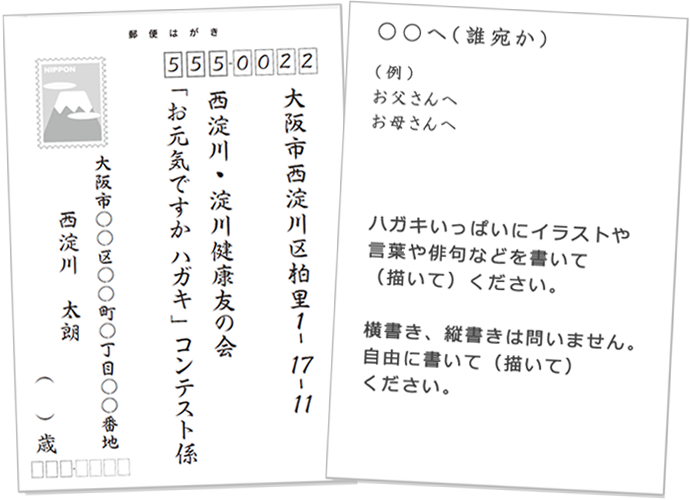 郵便はがき
NIPPON
555-0022
大阪市西淀川区柏里1-17-11
西淀川・淀川健康友の会
「お元気ですか ハガキ」コンテスト係
大阪市○○区○○町○丁目○○番地
西淀川 太朗 ( )歳
○○へ(誰宛か)
(例)
お父さんへ
お母さんへ
ハガキいっぱいにイラストや
言葉や俳句などを書いて
(描いて)ください。
横書き、縦書きは問いません。
自由に書いて(描いて)
ください。